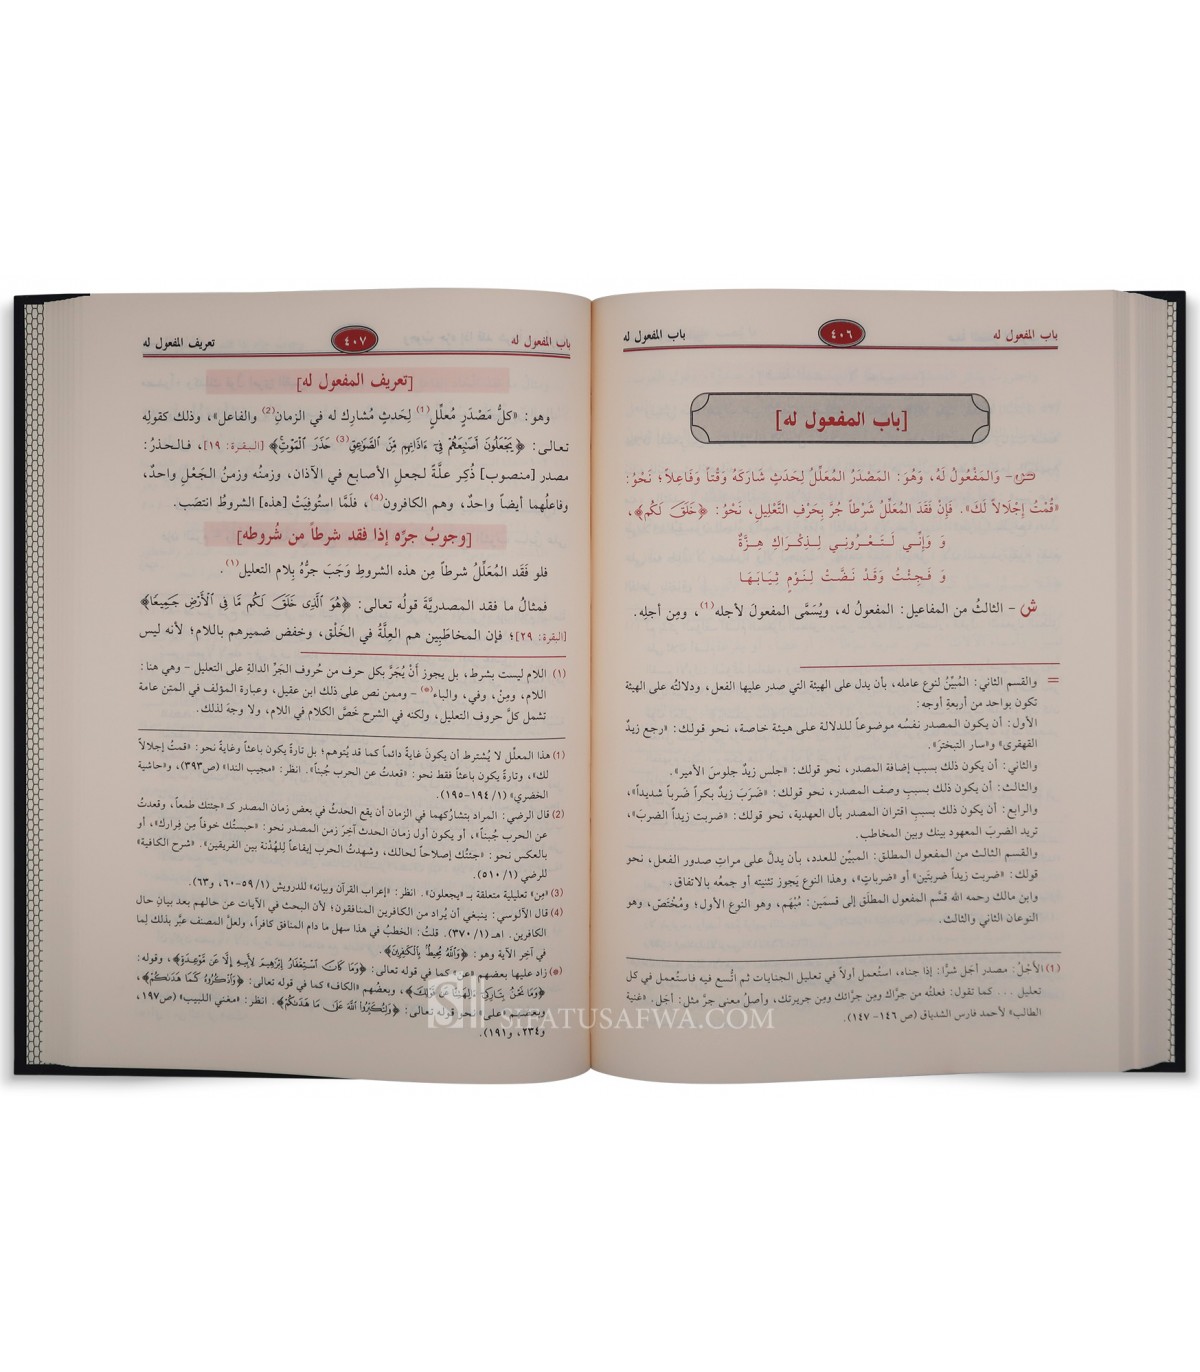 باب المفعول له ٤٠٦ باب المفعول له
[باب المفعول له]
ص - وَالمَفْعُولُ لَهُ، وَهُوَ: المَصْدَرُ المُعَلِّلُ لِحَدَثٍ شَارَكَهُ وَقْتاً وَفَاعِلاً؛ نَحْوُ:
«قُمْتُ إِجْلَالاً لَكَ». فَإِنْ فَقَدَ المُعَلِّلُ شَرْطاً جُرَّ بِحَرْفِ التَّعْلِيلِ، نَحْوُ: ﴿خَلَقَ لَكُم﴾،
وَ وَإِنِّي لَتَعْرُونِي لِذِكْرَاكِ هِزَّةٌ
وَ فَجِئْتُ وَقَدْ نَضَّتْ لِنَوْمٍ ثِيَابَهَا
ش - الثالثُ من المفاعيل: المفعولُ له، ويُسَمَّى المفعولَ لأجله(١)، ومِن أجلِه.
= والقسم الثاني: المُبيِّنُ لنوع عامله، بأن يدل على الهيئة التي صدر عليها الفعل، ودلالتُه على الهيئة
تكون بواحد من أربعةِ أوجه:
الأول: أن يكون المصدر نفسُه موضوعاً للدلالة على هيئة خاصة، نحو قولك: «رجع زيدٌ
القهقرى» و«سار التبخترَ».
والثاني: أن يكون ذلك بسبب إضافة المصدر، نحو قولك: «جلس زيدٌ جلوسَ الأمير».
والثالث: أن يكون ذلك بسبب وصف المصدر، نحو قولك: «ضَرَبَ زيدٌ بكراً ضرباً شديداً»،
والرابع: أن يكون ذلك بسبب اقتران المصدر بأل العهدية، نحو قولك: «ضربت زيداً الضربَ»،
تريد الضربَ المعهود بينك وبين المخاطب.
والقسم الثالث من المفعول المطلق: المبيِّن للعدد، بأن يدلَّ على مراتِ صدور الفعل، نحو
قولك: «ضربت زيداً ضربتَين» أو «ضرباتٍ»، وهذا النوع يَجوز تثنيته أو جمعُه بالاتفاق.
وابن مالك رحمه الله قسَّم المفعول المطلَق إلى قسمَين: مُبْهَم، وهو النوع الأول؛ ومُخْتَصّ، وهو
النوعان الثاني والثالث.
(١) الأَجْلُ: مصدر أَجَل شرًّا: إذا جناه، استُعمل أولاً في تعليل الجنايات ثم اتُّسع فيه فاستُعمل في كل
تعليل ... كما تقول: فعلتُه من جرَّاك ومِن جرَّائك ومِن جريرتك، وأصلُ معنى جرَّ مثل: أَجَل. «غنية
الطالب» لأحمد فارس الشدياق (ص ١٤٦- ١٤٧).
باب المفعول له ٤٠٧ تعريف المفعول له
[تعريف المفعول له]
وهو: «كلُّ مَصْدَرٍ مُعلِّلٍ(١) لِحَدثٍ مُشارِك له في الزمانِ(٢) والفاعل»، وذلك كقوله
تعالى: ﴿يَجْعَلُونَ أَصَٰبِعَهُمْ فِىٓ ءَاذَانِهِم مِّنَ ٱلصَّوَٰعِقِ(٣) حَذَرَ ٱلْمَوْتِ﴾ [البقرة: ١٩]، فـالـحذرُ:
مصدر [منصوب] ذُكِر علَّةً لجعلِ الأصابع في الآذان، وزمنُه وزمنُ الجَعْلِ واحدٌ،
وفاعلُهما أيضاً واحدٌ، وهم الكافرون(٤)، فلَمَّا استُوفيَتْ [هذه] الشروطُ انتصَب.
[وجوبُ جرِّه إذا فقد شرطاً من شُروطه]
فلو فَقَد المُعَلِّلُ شرطاً مِن هذه الشروطِ وَجَبَ جرُّهُ بِلام التعليل(١).
فمثالُ ما فقد المصدريَّةَ قولُه تعالى: ﴿هُوَ ٱلَّذِى خَلَقَ لَكُم مَّا فِى ٱلْأَرْضِ جَمِيعًا﴾
[البقرة: ٢٩]؛ فإن المخاطَبِين هم العِلَّةُ في الخَلْق، وخفض ضميرهم باللام؛ لأنه ليس
(١) اللام ليست بشرط، بل يجوز أَنْ يُجَرَّ بكل حرف من حُروف الجَرِّ الدالةِ على التعليل - وهي هنا:
اللام، ومِنْ، وفي، والباء(*) - وممن نص على ذلك ابن عقيل، وعبارة المؤلف في المتن عامة
تشمل كلَّ حروف التعليل، ولكنه في الشرح خَصَّ الكلام في اللام، ولا وجهَ لذلك.
(١) هذا المعلِّل لا يُشترط أن يكونَ غايةً دائماً كما قد يُتوهم؛ بل تارةً يكون باعثاً وغايةً نحو: «قمتُ إجلالاً
لك»، وتارة يكون باعثاً فقط نحو: «قعدتُ عن الحرب جُبناً». انظر: «مجيب الندا» (ص٣٩٣)، و«حاشية
الخضري» (١/ ١٩٤-١٩٥).
(٢) قال الرضي: المراد بتشارُكهما في الزمان أن يقع الحدثُ في بعض زمان المصدر كـ «جئتك طمعاً، وقعدتُ
عن الحرب جُبناً»، أو يكون أول زمان الحدث آخِرَ زمن المصدر نحو: «حبستُك خوفاً مِن فِرارِك»، أو
بالعكس نحو: «جئتُك إصلاحاً لحالك، وشهدتُ الحرب إيقاعاً لِلهُدْنة بين الفريقين». «شرح الكافية»
للرضي (١/ ٥١٠).
(٣) «مِن» تعليلية متعلقة بـ «يجعلون». انظر: «إعراب القرآن وبيانه» للدرويش (١/ ٥٩-٦٠، و٦٣).
(٤) قال الآلوسي: ينبغي أن يُراد من الكافرين المنافقون؛ لأن البحث في الآيات عن حالهم بعد بيانِ حال
الكافرين. اهـ (١/ ٣٧٠). قلتُ: الخطبُ في هذا سهل ما دام المنافق كافراً، ولعلَّ المصنف عبَّر بذلك لِما
في آخِر الآية وهو: ﴿وَٱللَّهُ مُحِيطٌۢ بِٱلْكَٰفِرِينَ﴾.
(*) زاد عليها بعضهم «عن» كما في قوله تعالى: ﴿وَمَا كَانَ ٱسْتِغْفَارُ إِبْرَٰهِيمَ لِأَبِيهِ إِلَّا عَن مَّوْعِدَةٍ﴾، وقوله:
﴿وَمَا نَحْنُ بِتَارِكِىٓ ءَالِهَتِنَا عَن قَوْلِكَ﴾، وبعضُهم «الكاف» كما في قوله تعالى: ﴿وَٱذْكُرُوهُ كَمَا هَدَىٰكُمْ﴾،
وبعضهم «على» نحو قوله تعالى: ﴿وَلِتُكَبِّرُوا۟ ٱللَّهَ عَلَىٰ مَا هَدَىٰكُمْ﴾. انظر: «مغني اللبيب» (ص١٩٧،
و٢٣٤، و١٩١).
SIFATUSAFWA.COM